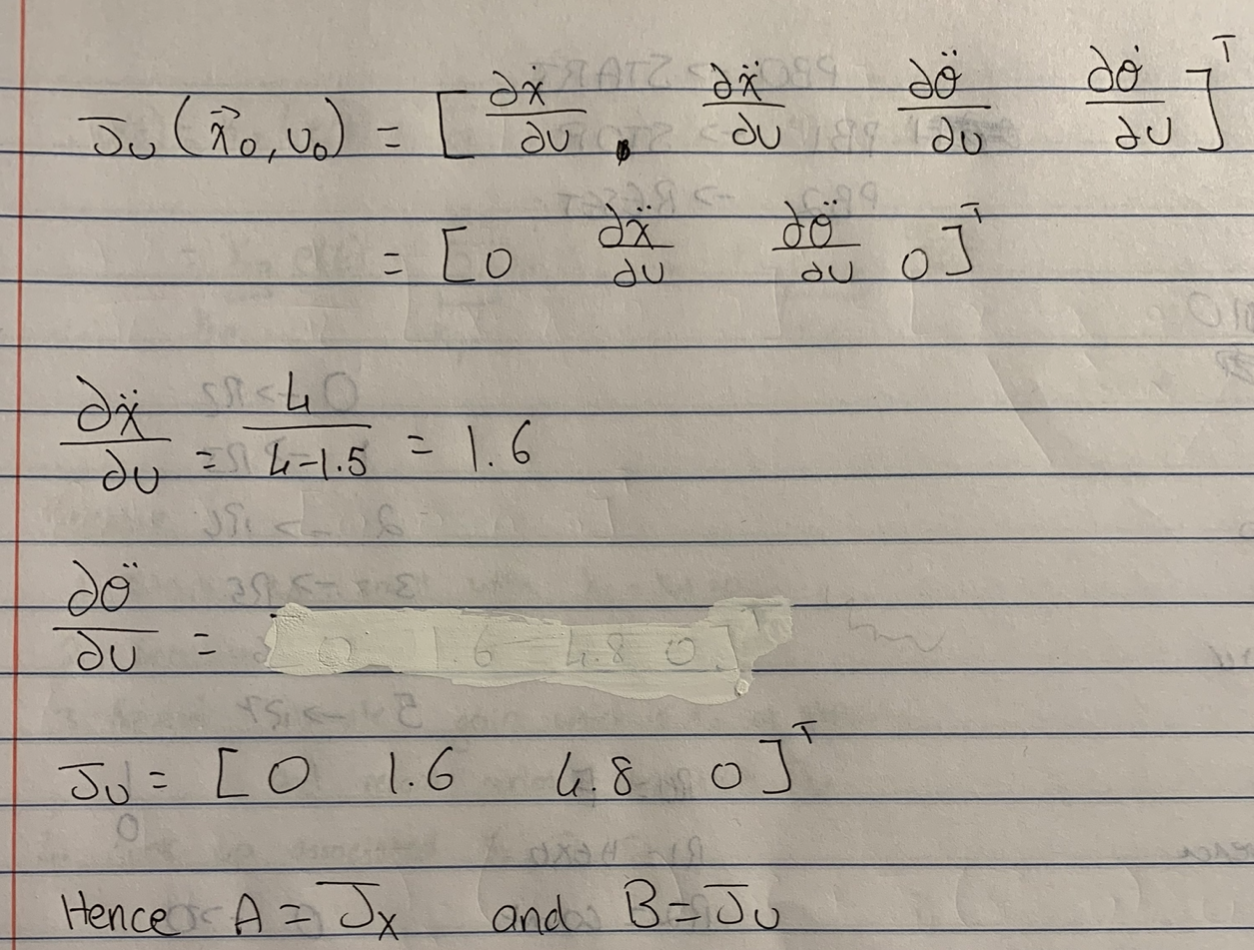 J_U (x⃗_0, U_0) = [ ∂ẋ/∂U ∂ẍ/∂U ∂θ̈/∂U ∂θ̇/∂U ]^T
= [ 0 ∂ẍ/∂U ∂θ̈/∂U 0 ]^T
∂ẍ/∂U = 4/(4-1.5) = 1.6
∂θ̈/∂U = 0 1.6 4.8 0 ]^T
J_U = [ 0 1.6 4.8 0 ]^T
Hence A = J_x and B = J_U